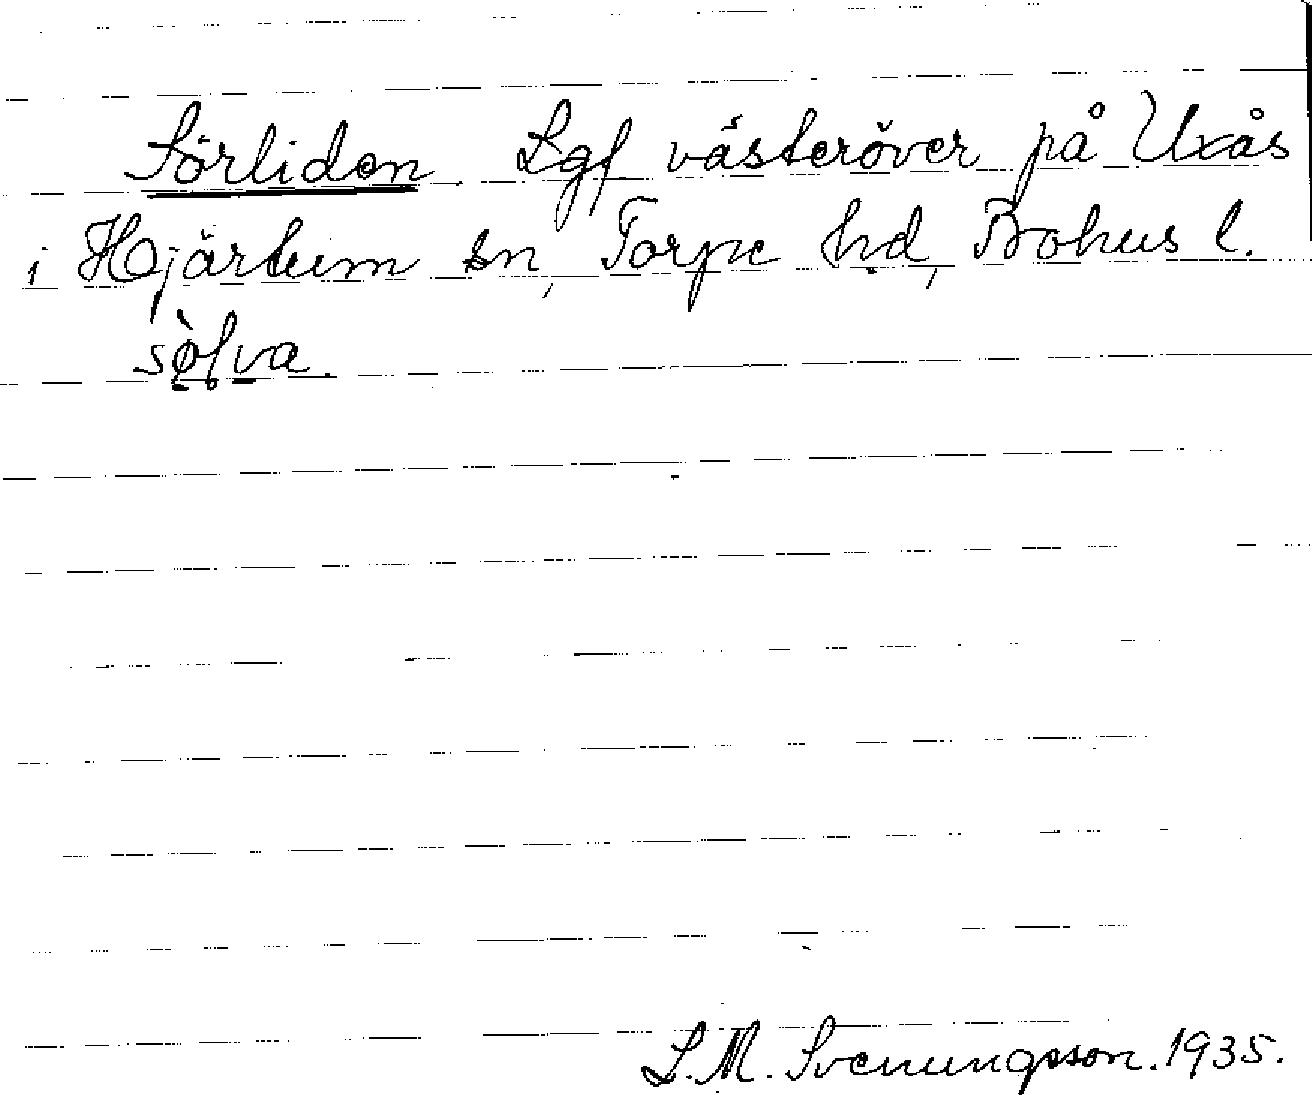 Sörliden Lgf västeröver på Uxås
i Hjärtum sn, Torpe hd, Bohus l.
L. M. Svenungsson. 1935.